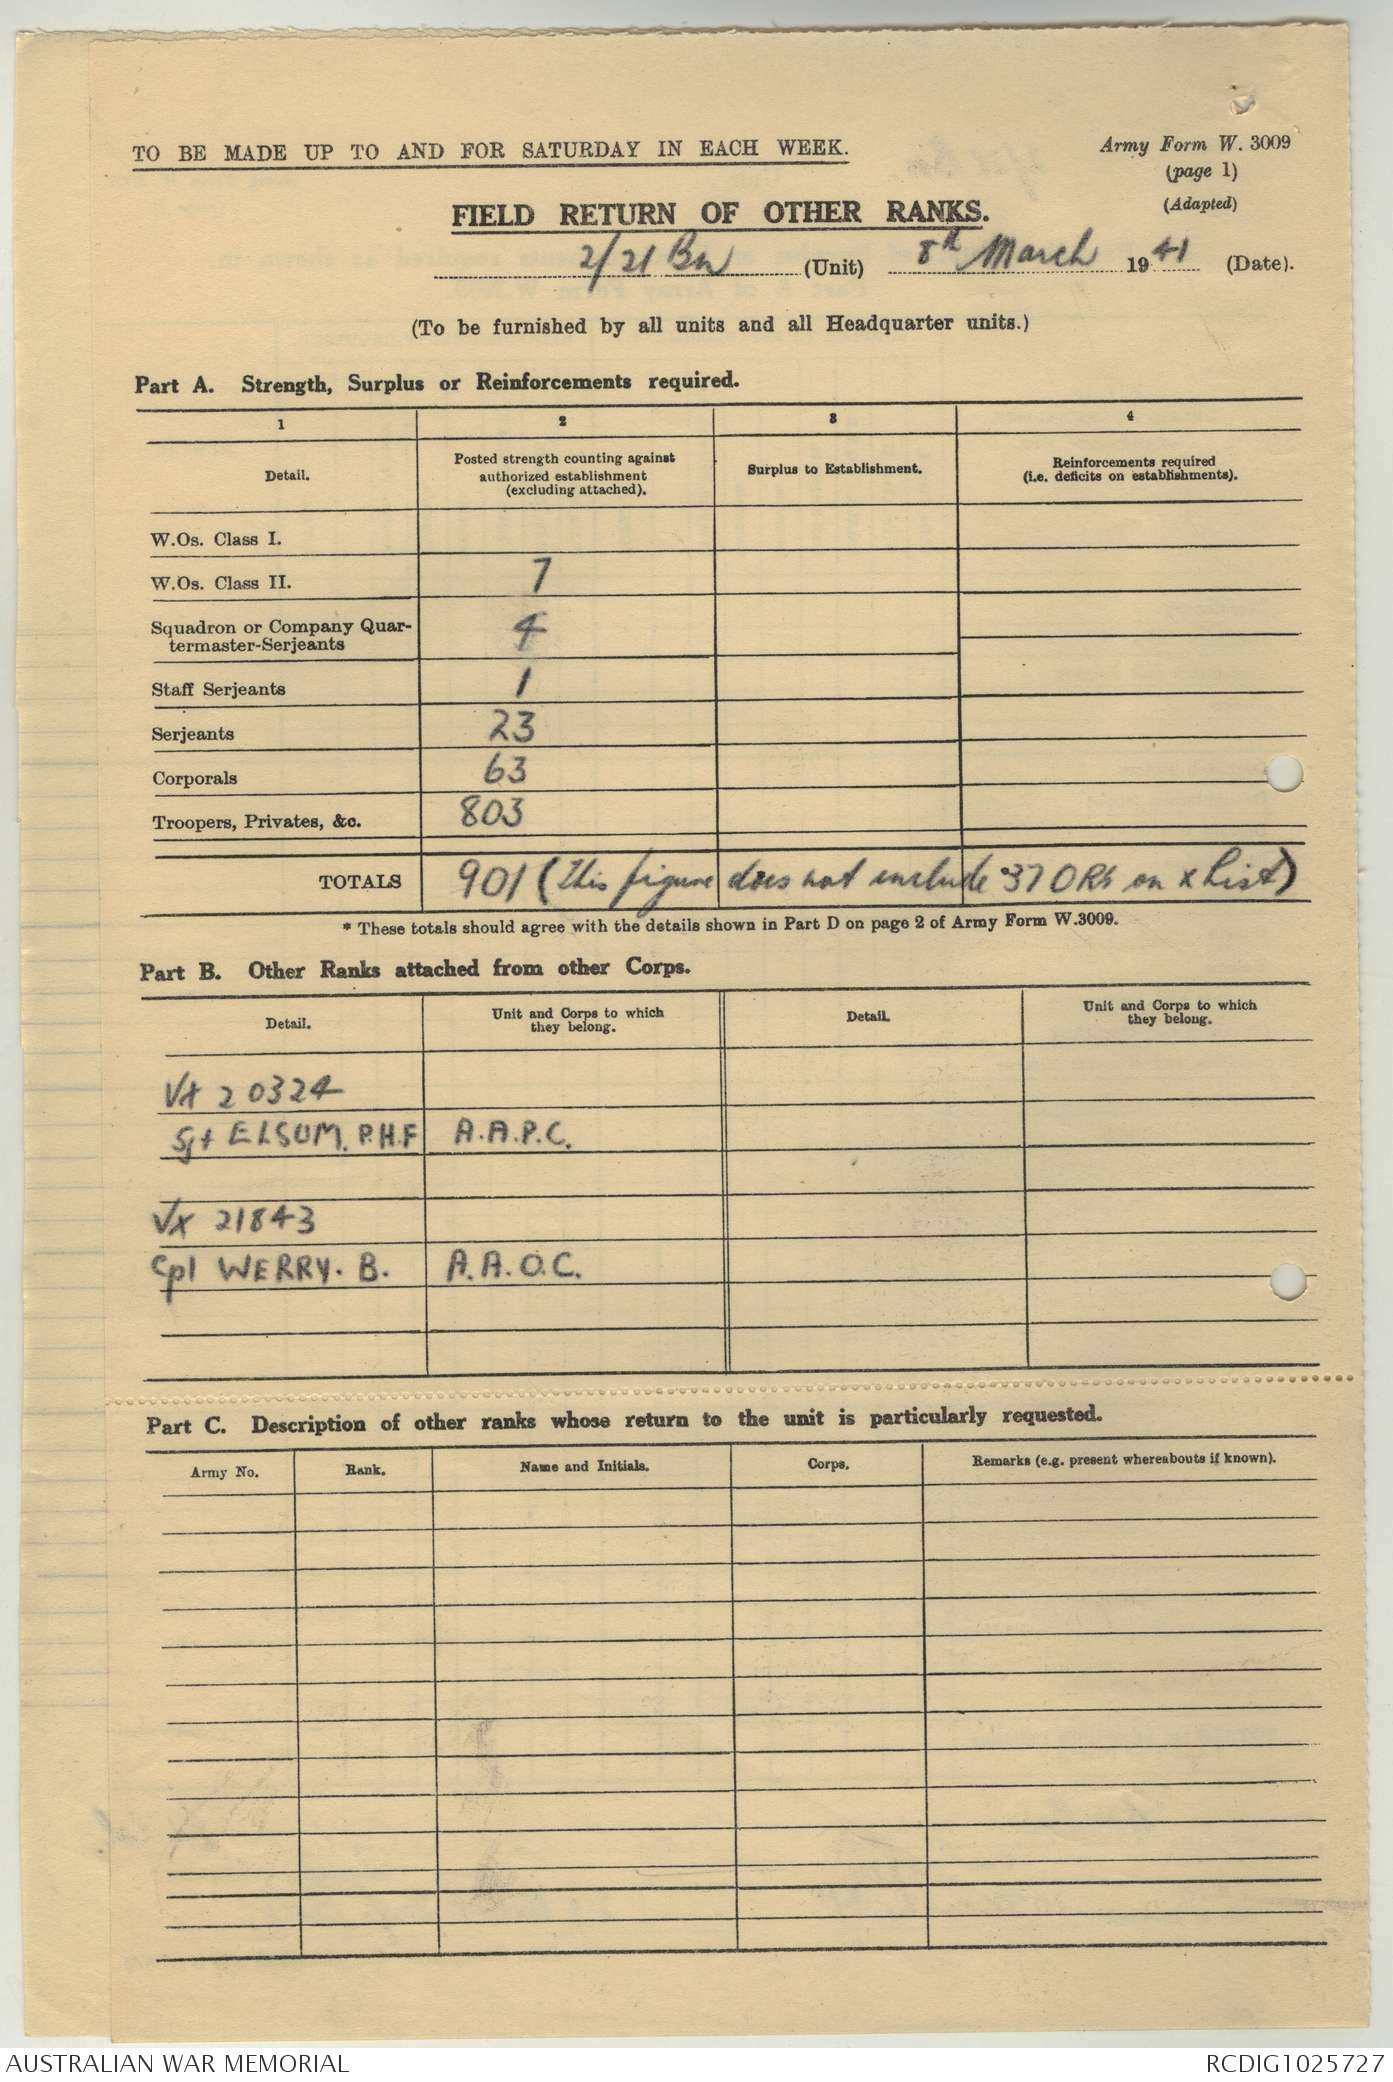 TO BE MADE UP TO AND FOR SATURDAY IN EACH WEEK.
Army Form W. 3009
(page 1)
(Adapted)
FIELD RETURN OF OTHER RANKS.
2/21 Bn (Unit) 8th March 1941 (Date).
(To be furnished by all units and all Headquarter units.)
Part A. Strength, Surplus or Reinforcements required.
1 2 3 4
Detail.
Posted strength counting against
authorized establishment
(excluding attached).
Surplus to Establishment.
Reinforcements required
(i.e. deficits on establishments).
W.Os. Class I.
W.Os. Class II. 7
Squadron or Company Quar-
termaster-Serjeants 4
Staff Serjeants 1
Serjeants 23
Corporals 63
Troopers, Privates, &c. 803
TOTALS 901 (This figure does not include 37 ORs on x List)
* These totals should agree with the details shown in Part D on page 2 of Army Form W.3009.
Part B. Other Ranks attached from other Corps.
Detail.
Unit and Corps to which
they belong.
Detail.
Unit and Corps to which
they belong.
VX 20324
Sgt ELSUM. P.H.F A.A.P.C.
VX 21843
Cpl WERRY. B. A.A.O.C.
Part C. Description of other ranks whose return to the unit is particularly requested.
Army No. Rank. Name and Initials. Corps. Remarks (e.g. present whereabouts if known).
AUSTRALIAN WAR MEMORIAL RCDIG1025727